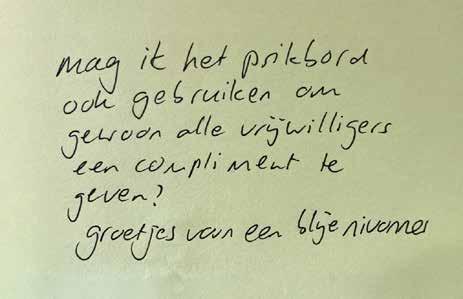 mag ik het prikbord
ook gebruiken om
gewoon alle vrijwilligers
een compliment te
geven?
groetjes van een blije